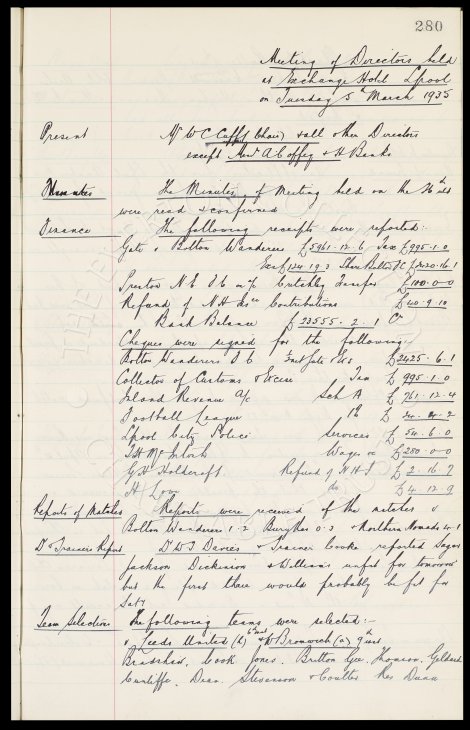 280
Meeting of Directors held
at Exchange Hotel Lpool
on Tuesday 5th March 1935
Present Mr W C Cuff (Chair) & all other Directors
except Messrs A Coffey & H Banks
Minutes The Minutes of Meeting held on the 26th ult
were read & confirmed
Finance The following receipts were reported:-
Gate v Bolton Wanderers £5961.12.6 Tax £995.1.0
£124.19.3 Share Bolton FC £2420.16.1
Preston N.E. F.C. on a/c Critchley Transfer £100.0.0
Refund of N H Ins Contributions £40.9.10
Bank Balance £23555.2.1 Cr
Cheques were signed for the following:
Bolton Wanderers F C £2425.6.1
Collector of Customs & Excise Tax £995.1.0
Inland Revenue a/c Sch A £761.12.4
Football League
Lpool City Police Services £54.6.0
T H McIntosh Wages a/c £250.0.0
G H Holdcroft Refund of N H I £2.16.9
H do £4.12.9
Reports of Matches Reports were received of the matches v
Bolton Wanderers 1.2 Bury Res 0.3 & Northern Nomads 4.1
Dr & Trainers Report Dr W T Davies & Trainer Cooke reported Sagar
Jackson Dickinson & Williams unfit for tomorrow
but the first three would probably be fit for
Saty
Team Selection The following teams were selected:-
v Leeds United (h) 6th inst & W Bromwich (a) 9th inst.
Bradshaw, Cook Jones. Britton Gee. Thomson, Geldard
Cunliffe. Dean. Stevenson & Coulter Res Dunn